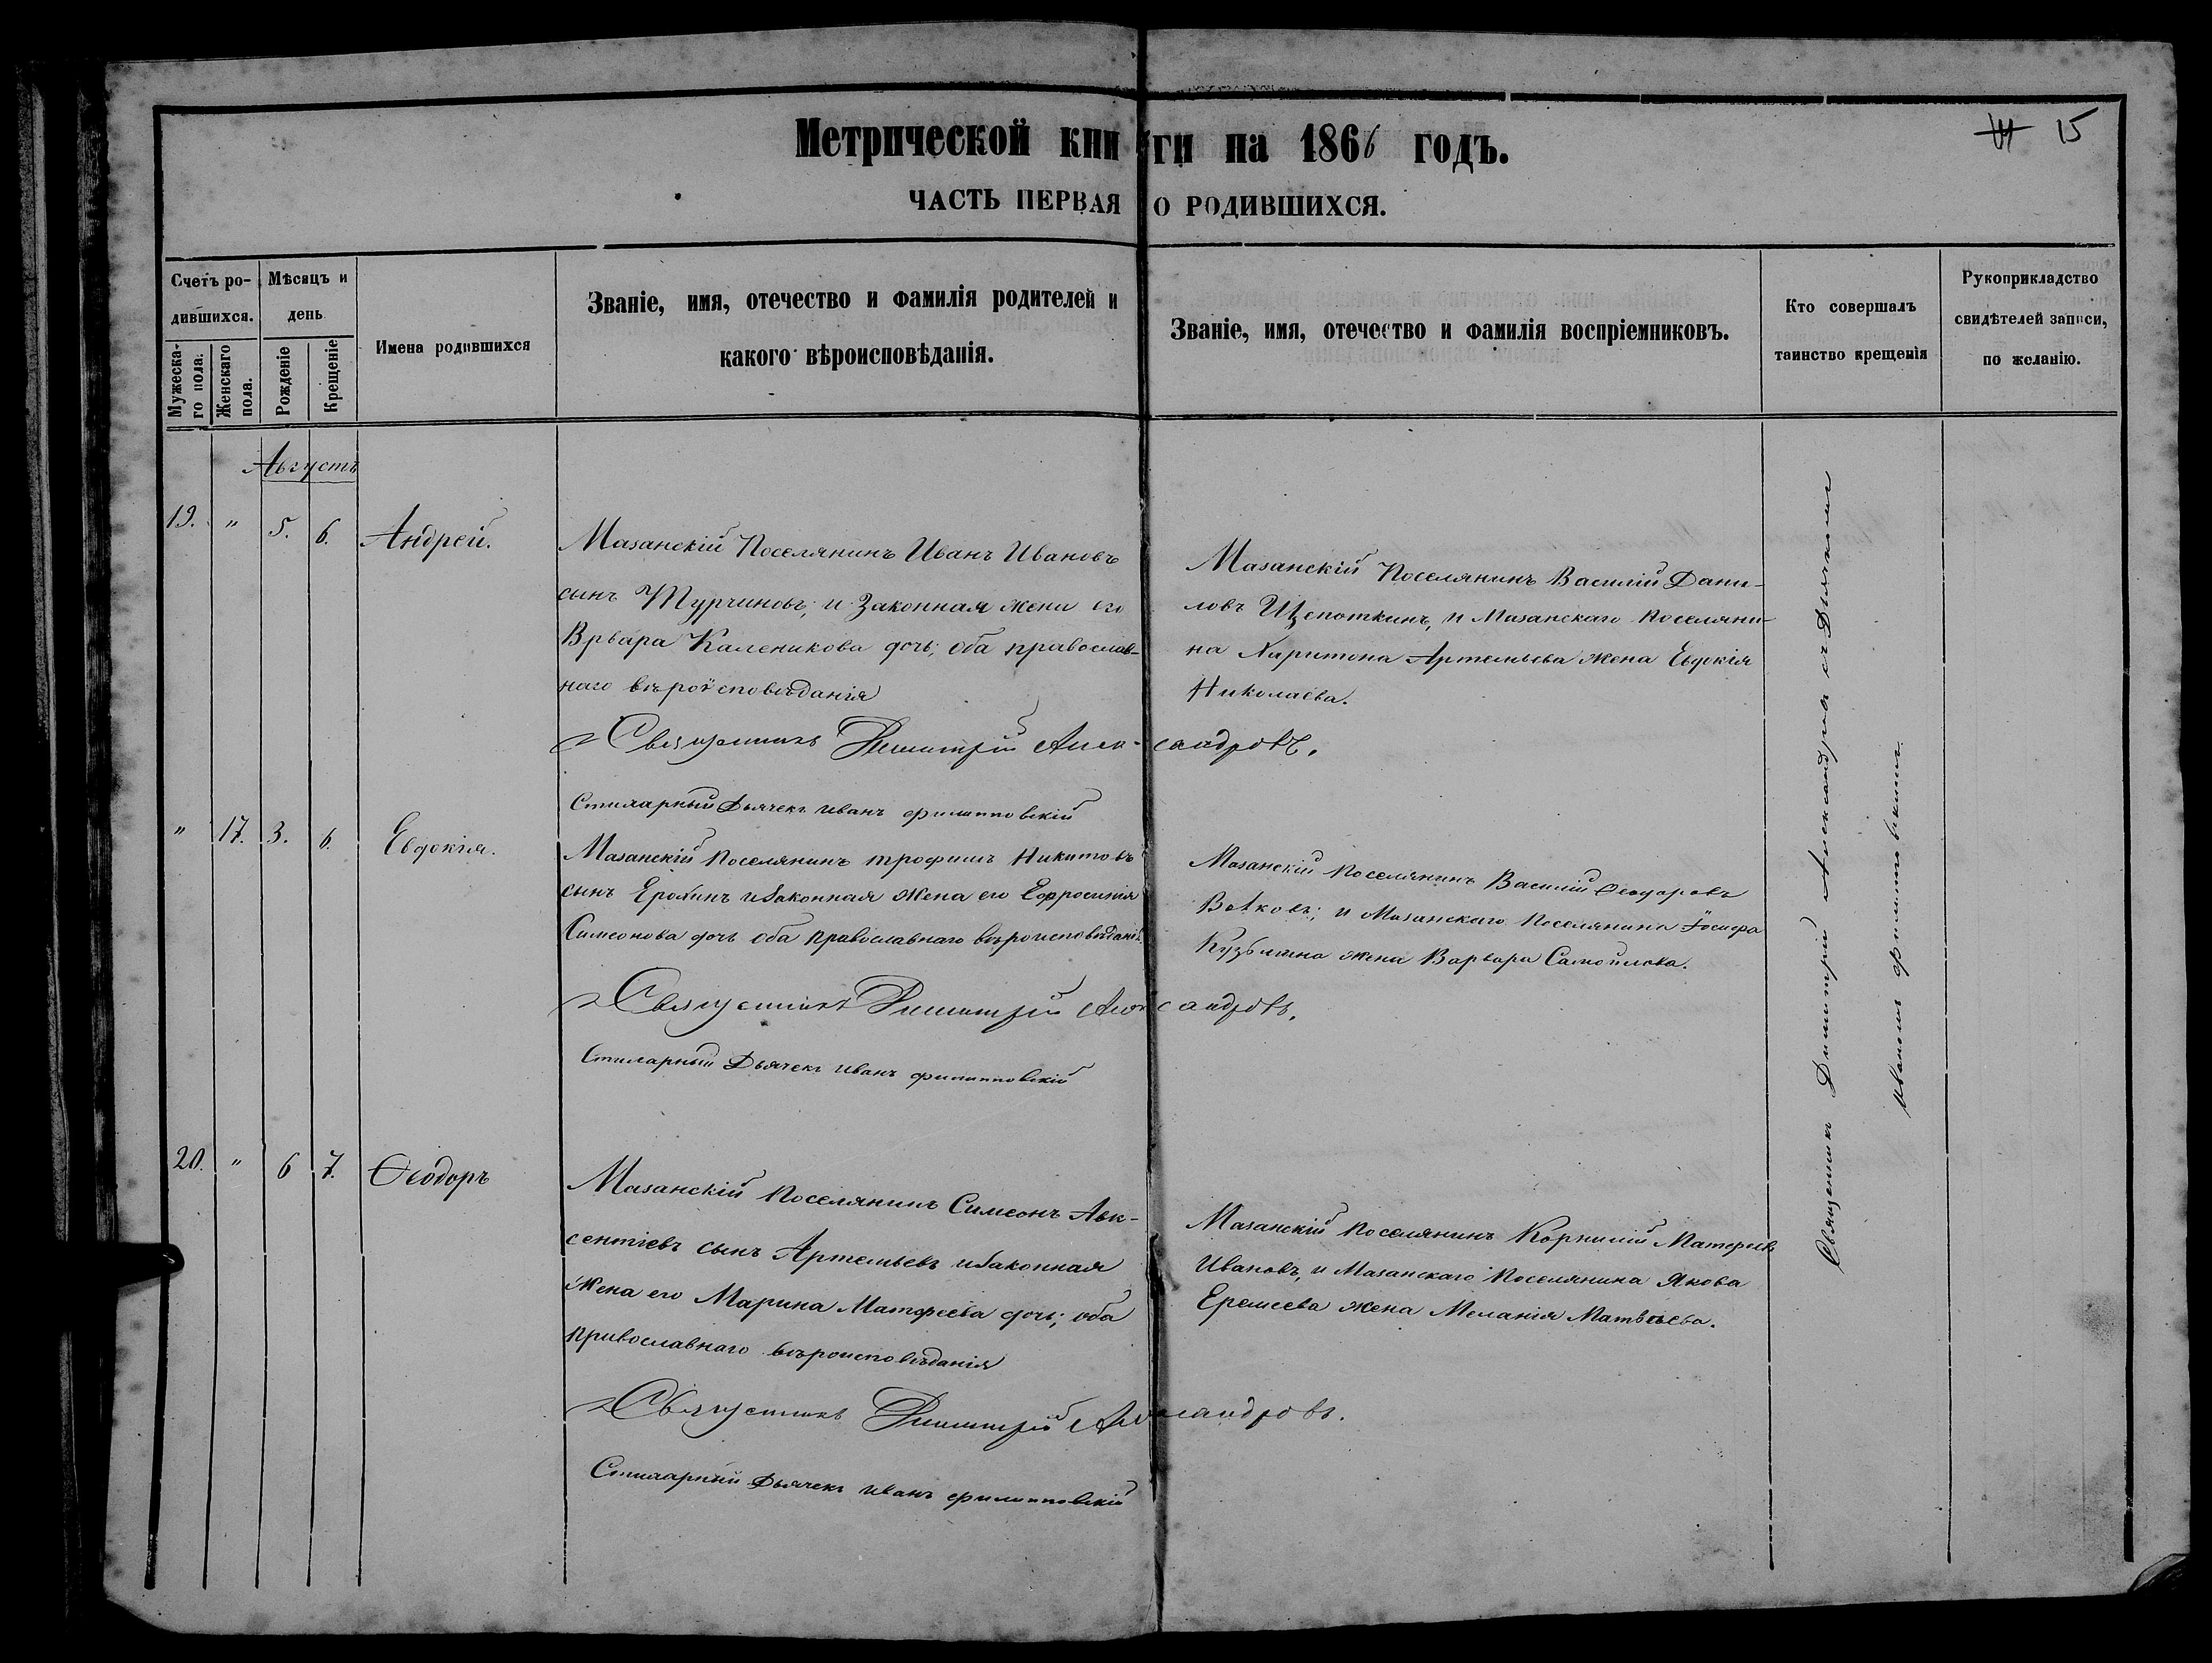 15
Метрической книги на 1866 годъ.
ЧАСТЬ ПЕРВАЯ О РОДИВШИХСЯ.
Счетъ ро-
дившихся.
Мужеска-
го пола.
Женскаго
пола.
Мѣсяцъ и
день
Рожденіе
Крещеніе
Имена родившихся
Званіе, имя, отечество и фамилія родителей и
какого вѣроисповѣданія.
Званіе, имя, отечество и фамилія воспріемниковъ.
Кто совершалъ
таинство крещенія
Рукоприкладство
свидѣтелей записи,
по желанію.
Августъ
19. " 5. 6. Андрей.
Мазанскій Поселянинъ Иванъ Ивановъ
сынъ Турчиновъ, и Законная жени его
Врвара Каленикова дочь; оба православ-
наго вѣроисповѣданія
Мазанскій Поселянинъ Василій Дани-
ловъ Щепоткинъ, и Мазанскаго Поселяни-
на Харитона Артемьева жена Евдокія
Николаева.
Священникъ Димитрій Александровъ.
Стихарный Дьячекъ Иванъ Филипповскій
" 17. 3. 6. Евдокія.
Мазанскій Поселянинъ Трофимъ Никитовъ
сынъ Ерохинъ и Законная Жена его Ефросинія
Симеонова дочь оба Православнаго вѣроисповѣданія.
Мазанскій Поселянинъ Василій Ѳеодоровъ
и Мазанскаго Поселянина Іосифа
Кузьмина жена Варвара Самойлова.
Священникъ Димитрій Александровъ.
Стихарный Дьячекъ Иванъ Филипповскій
20. " 6 7. Ѳеодоръ
Мазанскій Поселянинъ Симеонъ Авк-
сентіевъ сынъ Артемьевъ и Законная
Жена его Марина Матфеева дочь; оба
православнаго вѣроисповѣданія
Мазанскій Поселянинъ Корнилій Матфеевъ
Ивановъ, и Мазанскаго Поселянина Якова
Еремеева жена Меланія Матвѣева.
Священникъ Димитрій Александровъ.
Стихарный Дьячекъ Иванъ Филипповскій
Священникъ Димитрій Александровъ съ Дьячкомъ
Иваномъ Филипповскимъ.